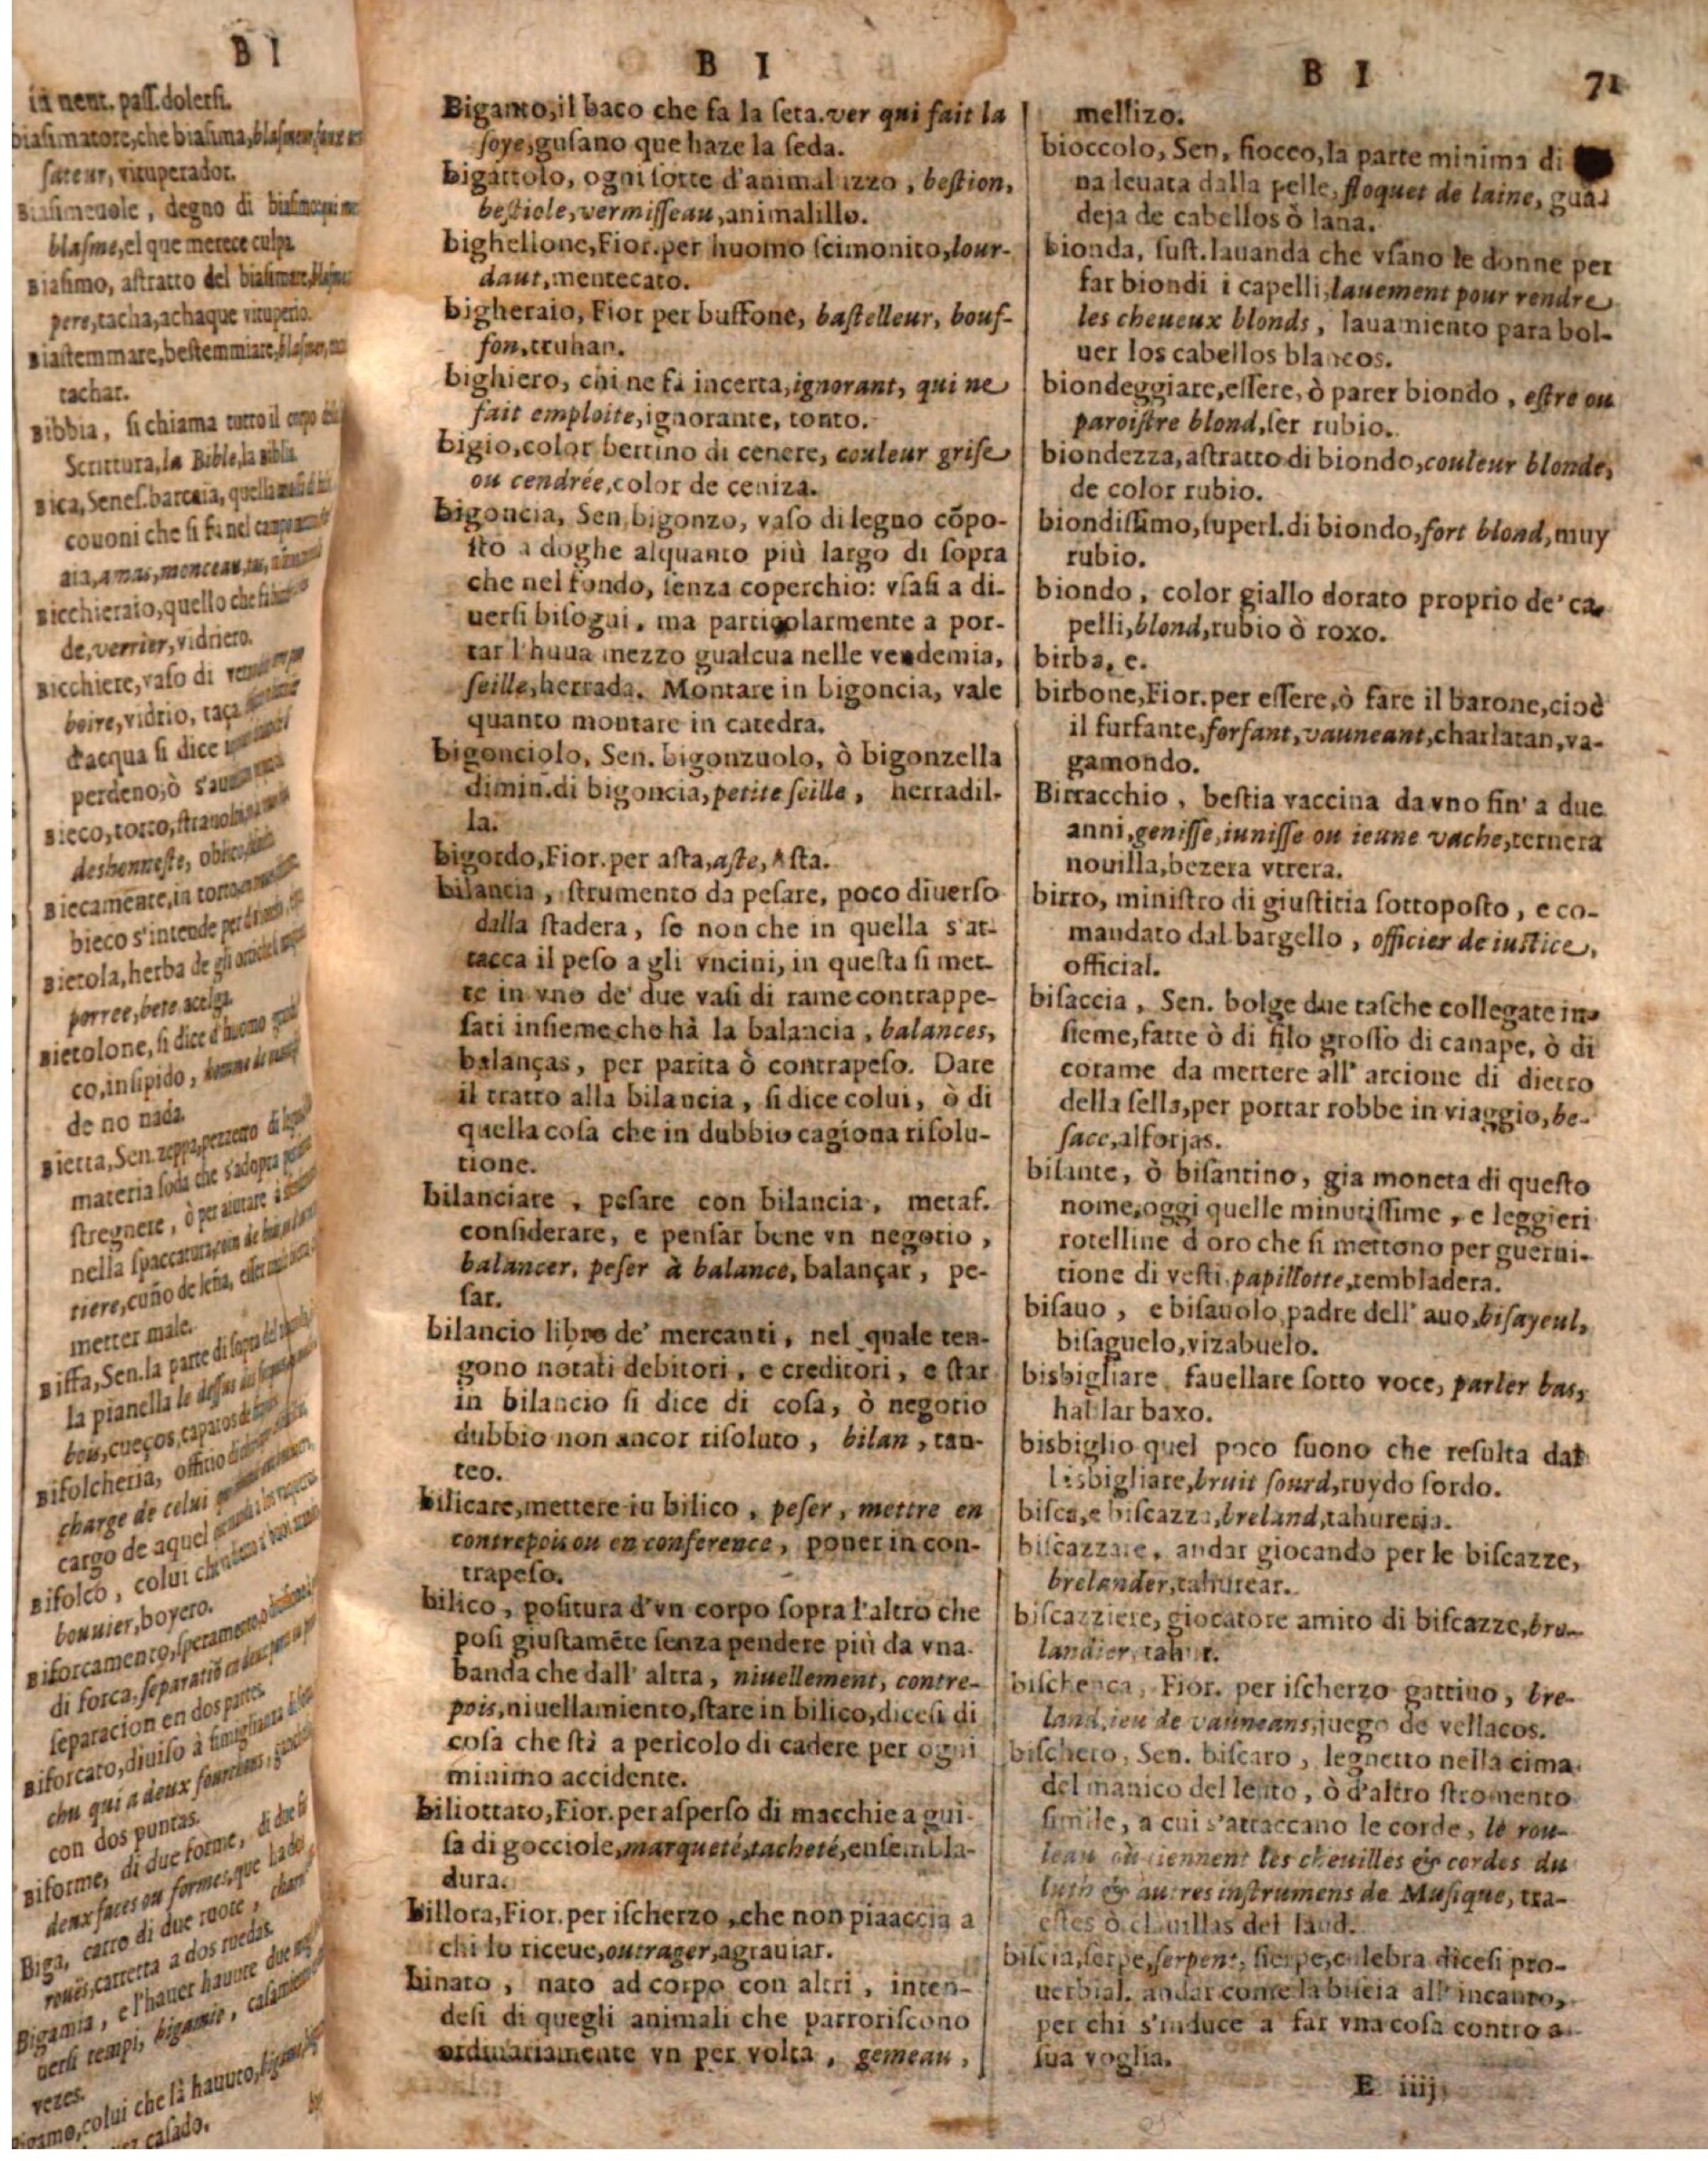 B I
ia neut. pass. dolersi.
biasimatore, che biasima,
sateur, vituperador.
Biasimeuole, degno di
blasme, el que merece culpa
Biasimo, astratto del
pere, tacha, achaque vituperio.
Biastemmare, bestemmiare,
tachar.
Bibbia, si chiama tutto il corpo
Scrittura, la Bible, la biblia
Bica, Senes. barcaia, quella
couoni che si fa nel campo
aia, amas, monceau,
Bicchieraio, quello che fa
de, verrier, vidriero.
Bicchiere, vaso di
boire, vidrio, taça
d'acqua si dice
perdeno, ò
Bieco, torto,
deshonneste,
Biecamente, in torto
bieco s'intende per
Bietola, herba de gli
porree, bete acelga.
Bietolone, si dice d'huomo
co, insipido,
de no nada.
Bietta, Sen. zeppa, pezzetto di
materia soda che s'adopra
stregnere, ò per aiutare à
nella spaccatura, coin de
tiere, cuño de leña,
metter male.
Biffa, Sen. la parte di sopra del
la pianella le dessus
bois, cueços, çapatos de
Bifolcheria, officio
charge de celui
cargo de aquel
Bifolco, colui che
bouuier, boyero.
Biforcamento,
di forca. separatiō
separacion en dos partes.
Biforcato, diuiso à simiglianza di
chu qui a deux fourchons,
con dos puntas.
Biforme, di due forme, di due
deux faces ou formes, que
Biga, carro di due ruote,
roues, carretta a dos ruedas.
Bigamia, e l'hauer hauute due
uersi tempi, bigamie,
vezes.
Bigamo, colui che
casado.
B I
Bigatto, il baco che fa la seta. ver qui fait la
soye, gusano que haze la seda.
bigattolo, ogni sorte d'animaluzzo, bestion,
bestiole, vermisseau, animalillo.
bighellone, Fior. per huomo scimonito, lour-
daut, mentecato.
bigheraio, Fior per buffone, bastelleur, bouf-
fon, truhan.
bighiero, chi ne fà incerta, ignorant, qui ne
fait emploite, ignorante, tonto.
bigio, color bertino di cenere, couleur grise
ou cendrée, color de ceniza.
bigoncia, Sen, bigonzo, vaso di legno cōpo-
sto a doghe alquanto più largo di sopra
che nel fondo, senza coperchio: vsasi a di-
uersi bisogni, ma particolarmente a por-
tar l'huua mezzo gualcua nelle vendemia,
seille, herrada. Montare in bigoncia, vale
quanto montare in catedra.
bigonciolo, Sen. bigonzuolo, ò bigonzella
dimin. di bigoncia, petite seille, herradil-
la.
bigordo, Fior. per asta, aste, Asta.
bilancia, strumento da pesare, poco diuerso
dalla stadera, se non che in quella s'at-
tacca il peso a gli vncini, in questa si met-
te in vno de' due vasi di rame contrappe-
sati insieme che hà la balancia, balances,
balanças, per parita ò contrapeso. Dare
il tratto alla bilancia, si dice colui, ò di
quella cosa che in dubbio cagiona risolu-
tione.
bilanciare, pesare con bilancia, metaf.
considerare, e pensar bene vn negotio,
balancer, peser à balance, balançar, pe-
sar.
bilancio libro de' mercanti, nel quale ten-
gono notati debitori, e creditori, e star
in bilancio si dice di cosa, ò negotio
dubbio non ancor risoluto, bilan, tan-
teo.
bilicare, mettere in bilico, peser, mettre en
contrepois ou en conference, poner in con-
trapeso.
bilico, positura d'vn corpo sopra l'altro che
posi giustamēte senza pendere più da vna
banda che dall' altra, niuellement, contre-
pois, niuellamiento, stare in bilico, dicesi di
cosa che stà a pericolo di cadere per ogni
minimo accidente.
biliottato, Fior. per asperso di macchie a gui-
sa di gocciole, marqueté, tacheté, ensembla-
dura.
billora, Fior. per ischerzo, che non piaaccia a
chi lo riceue, outrager, agrauiar.
binato, nato ad corpo con altri, inten-
desi di quegli animali che parroriscono
ordinariamente vn per volta, gemeau,
B I 71
mellizo.
bioccolo, Sen, fiocco, la parte minima di
na leuata dalla pelle, floquet de laine, gua-
deja de cabellos ò lana.
bionda, sust. lauanda che vsano le donne per
far biondi i capelli, lauement pour rendre
les cheueux blonds, lauamiento para bol-
uer los cabellos blancos.
biondeggiare, essere, ò parer biondo, estre ou
paroistre blond, ser rubio.
biondezza, astratto di biondo, couleur blonde,
de color rubio.
biondissimo, superl. di biondo, fort blond, muy
rubio.
biondo, color giallo dorato proprio de' ca-
pelli, blond, rubio ò roxo.
birba, e.
birbone, Fior. per essere, ò fare il barone, cioè
il furfante, forfant, vauneant, charlatan, va-
gamondo.
Birracchio, bestia vaccina da vno fin' a due
anni, genisse, iunisse ou ieune vache, ternera
nouilla, bezera vtrera.
birro, ministro di giustitia sottoposto, e co-
mandato dal bargello, officier de iustice,
official.
bisaccia, Sen. bolge due tasche collegate in-
sieme, fatte ò di filo grosso di canape, ò di
corame da mettere all' arcione di dietro
della sella, per portar robbe in viaggio, be-
sace, alforjas.
bisante, ò bisantino, gia moneta di questo
nome, oggi quelle minutissime, e leggieri
rotelline d oro che si mettono per guerni-
tione di vesti, papillotte, tembladera.
bisauo, e bisauolo padre dell' auo, bisayeul,
bisaguelo, vizabuelo.
bisbigliare, fauellare sotto voce, parler bas,
hablar baxo.
bisbiglio quel poco suono che resulta dal
bisbigliare, bruit sourd, ruydo sordo.
bisca, e biscazza, breland, tahureria.
biscazzare, andar giocando per le biscazze,
brelander, tahurear.
biscazziere, giocatore amico di biscazze, bre-
landier, tahur.
bischenca, Fior. per ischerzo gattiuo, bre-
land, ieu de vauneans, juego de vellacos.
bischero, Sen. biscaro, legnetto nella cima
del manico del leuto, ò d'altro stromento
simile, a cui s'attaccano le corde, le rou-
leau où tiennent les cheuilles & cordes du
luth & autres instrumens de Musique, tra-
estes ò clauillas del laud.
biscia, serpe, serpent, sierpe, culebra dicesi pro-
uerbial. andar come la biscia all' incanto,
per chi s'induce a far vna cosa contro a
sua voglia.
E iiij